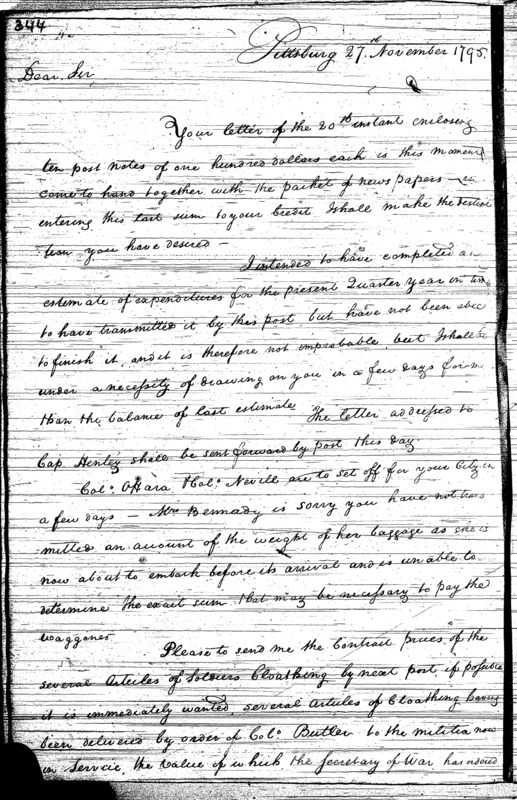 344
Pittsburg 27th November 1795.
Dear Sir,
Your letter of the 20th instant enclosing
ten post notes of one hundred dollars each is this moment
come to hand together with the packet of news papers — in
entering this last sum to your Credit I shall make the distinc
tion you have desired —
I intended to have completed an
estimate of expenditures for the present Quarter year in time
to have transmitted it by this post, but have not been able
to finish it, and it is therefore not improbable but I shall be
under a necessity of drawing on you in a few days for
than the balance of last estimate The letter addressed to
Cap. shall be sent forward by post this day.
Colo. OHara & Colo. Nevill are to set off for your City in
a few days — Mrs is sorry you have not trans
mitted an account of the weight of her baggage as she is
now about to embark before its arrival and is unable to
determine the exact sum that may be necessary to pay the
waggoner
Please to send me the Contract prices of the
several Articles of Soldiers Cloathing by next post, if possible
it is immediately wanted, several Articles of Cloathing having
been delivered by order of Colo. Butler to the militia now
in Service, the value of which the Secretary of War has ordered